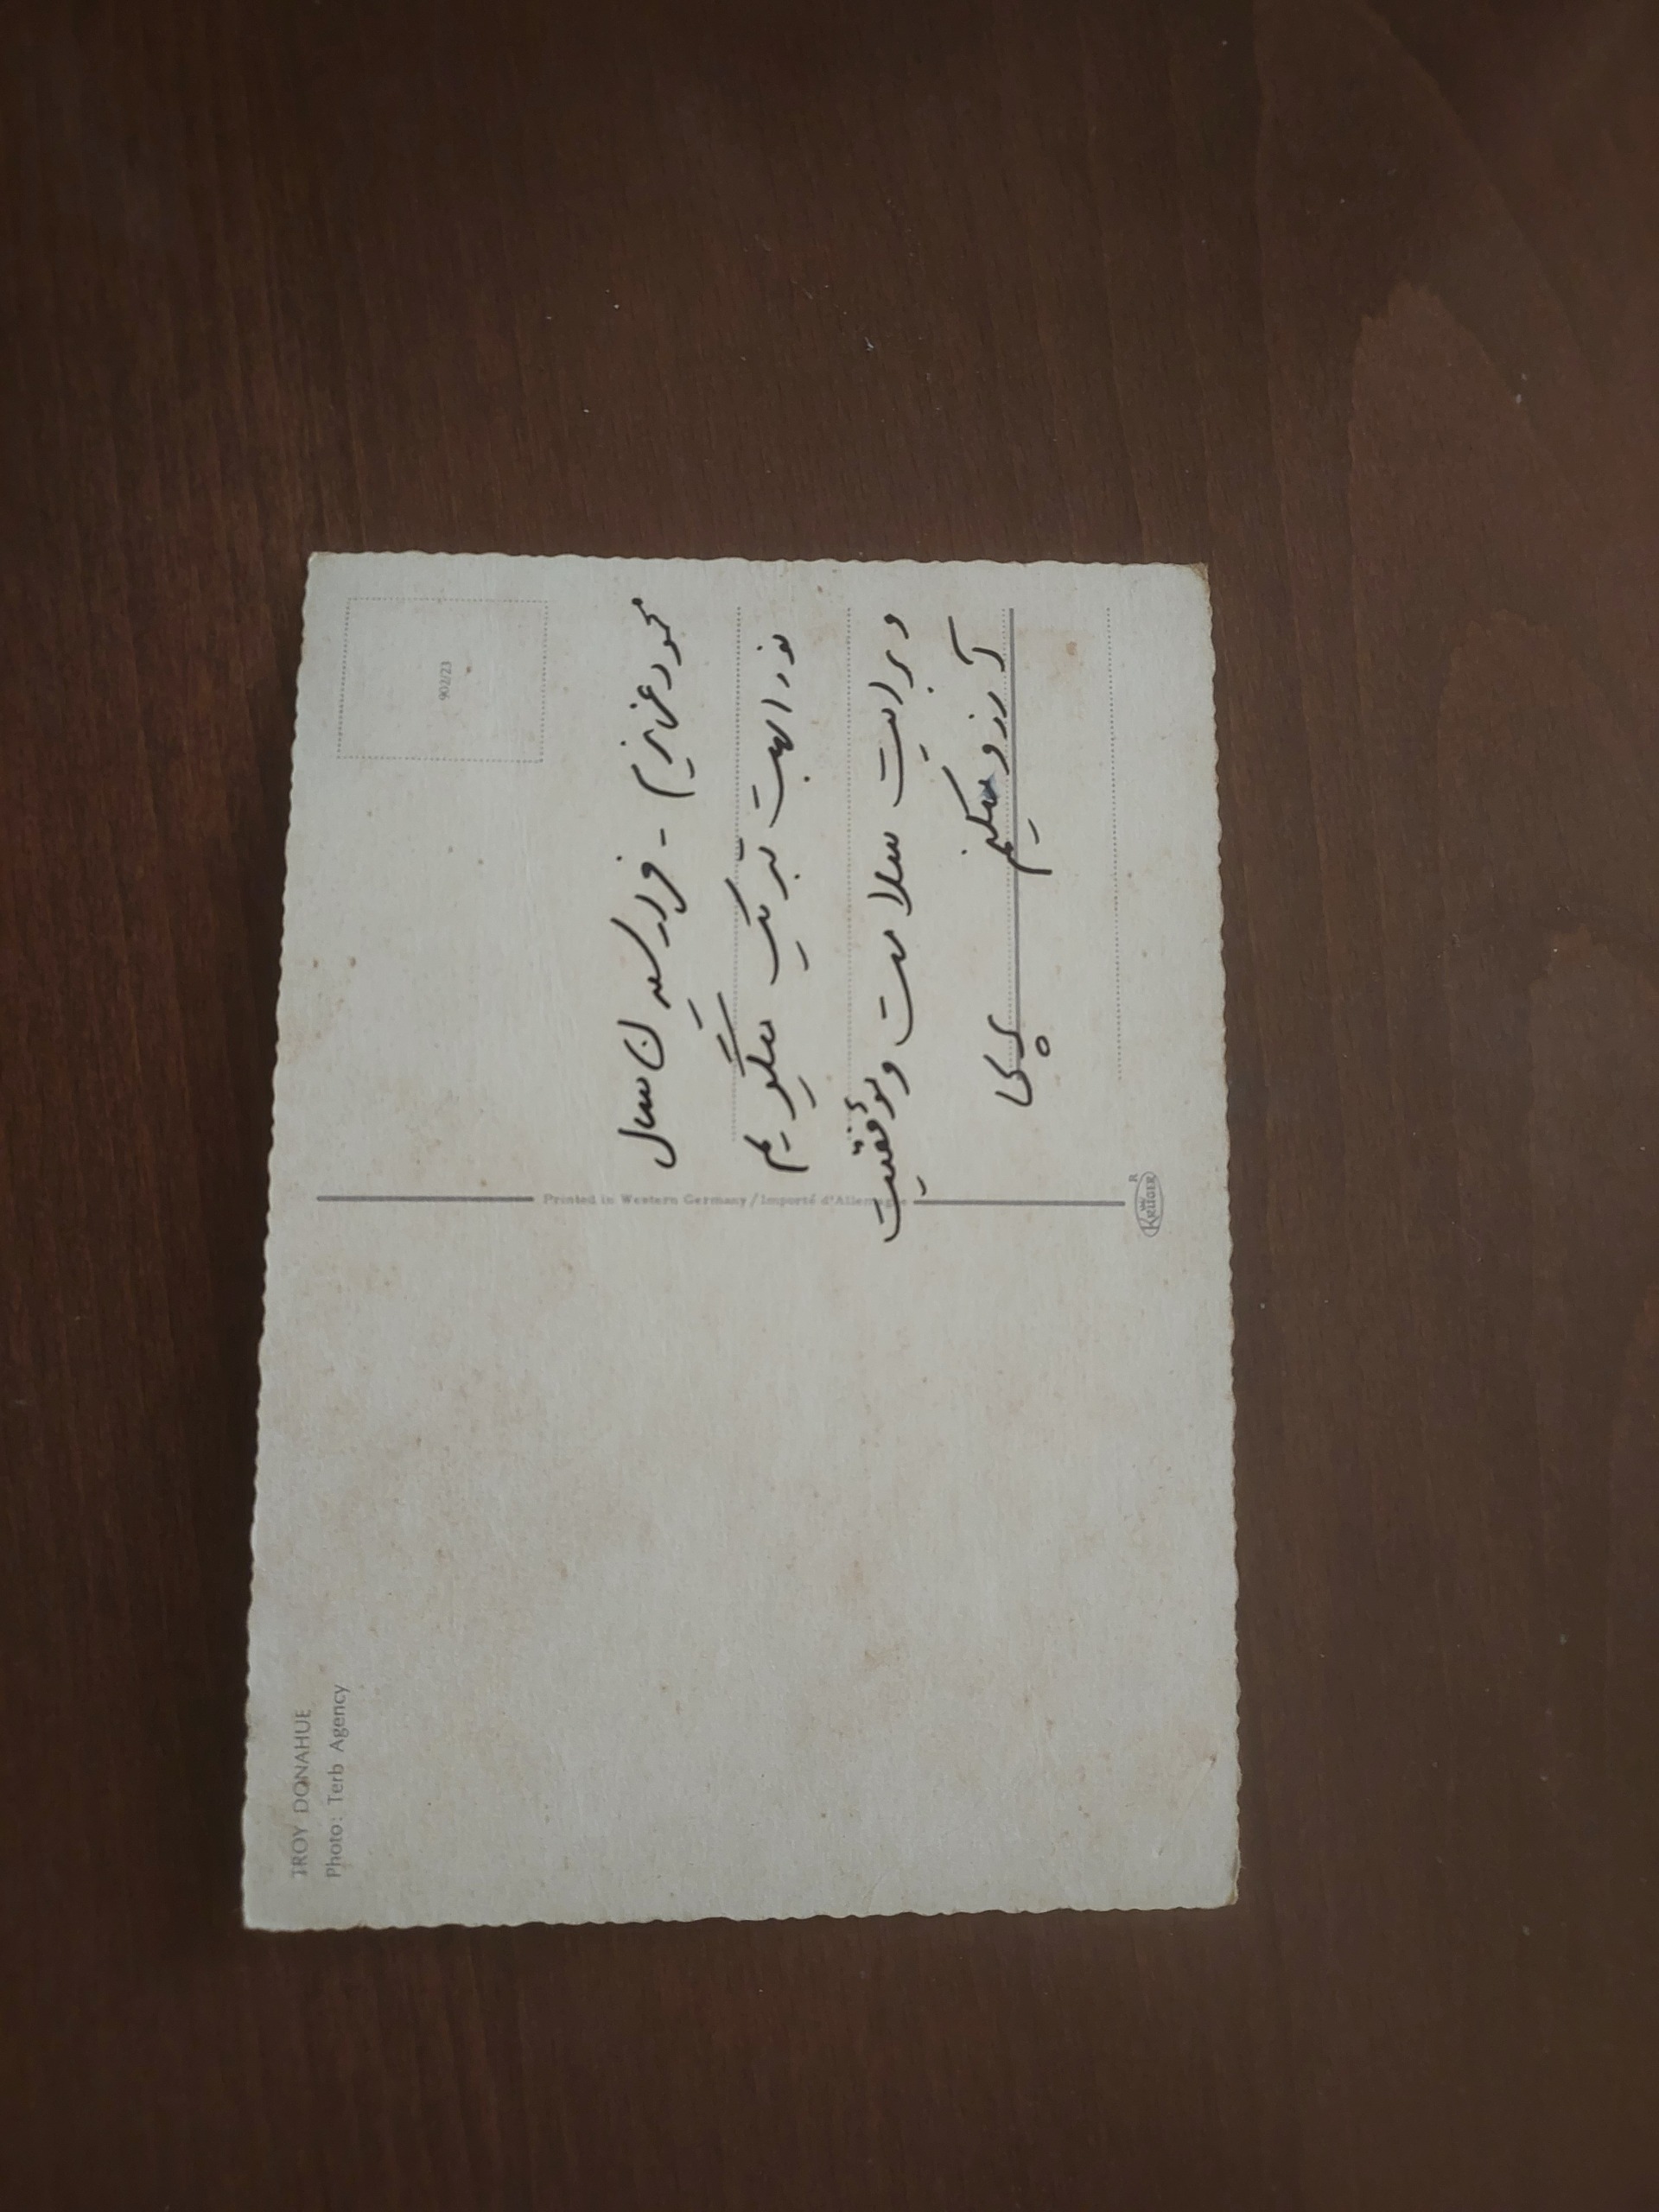 TROY DONAHUE
Photo: Terb Agency
902/23
Printed in Western Germany/Importé d'Allemagne
KRÜGER
R
محمود عزیزم - فرارسیدن سال
نو را بهت تبریک میگویم
و برایت سلامت و موفقیت
آرزو میکنم